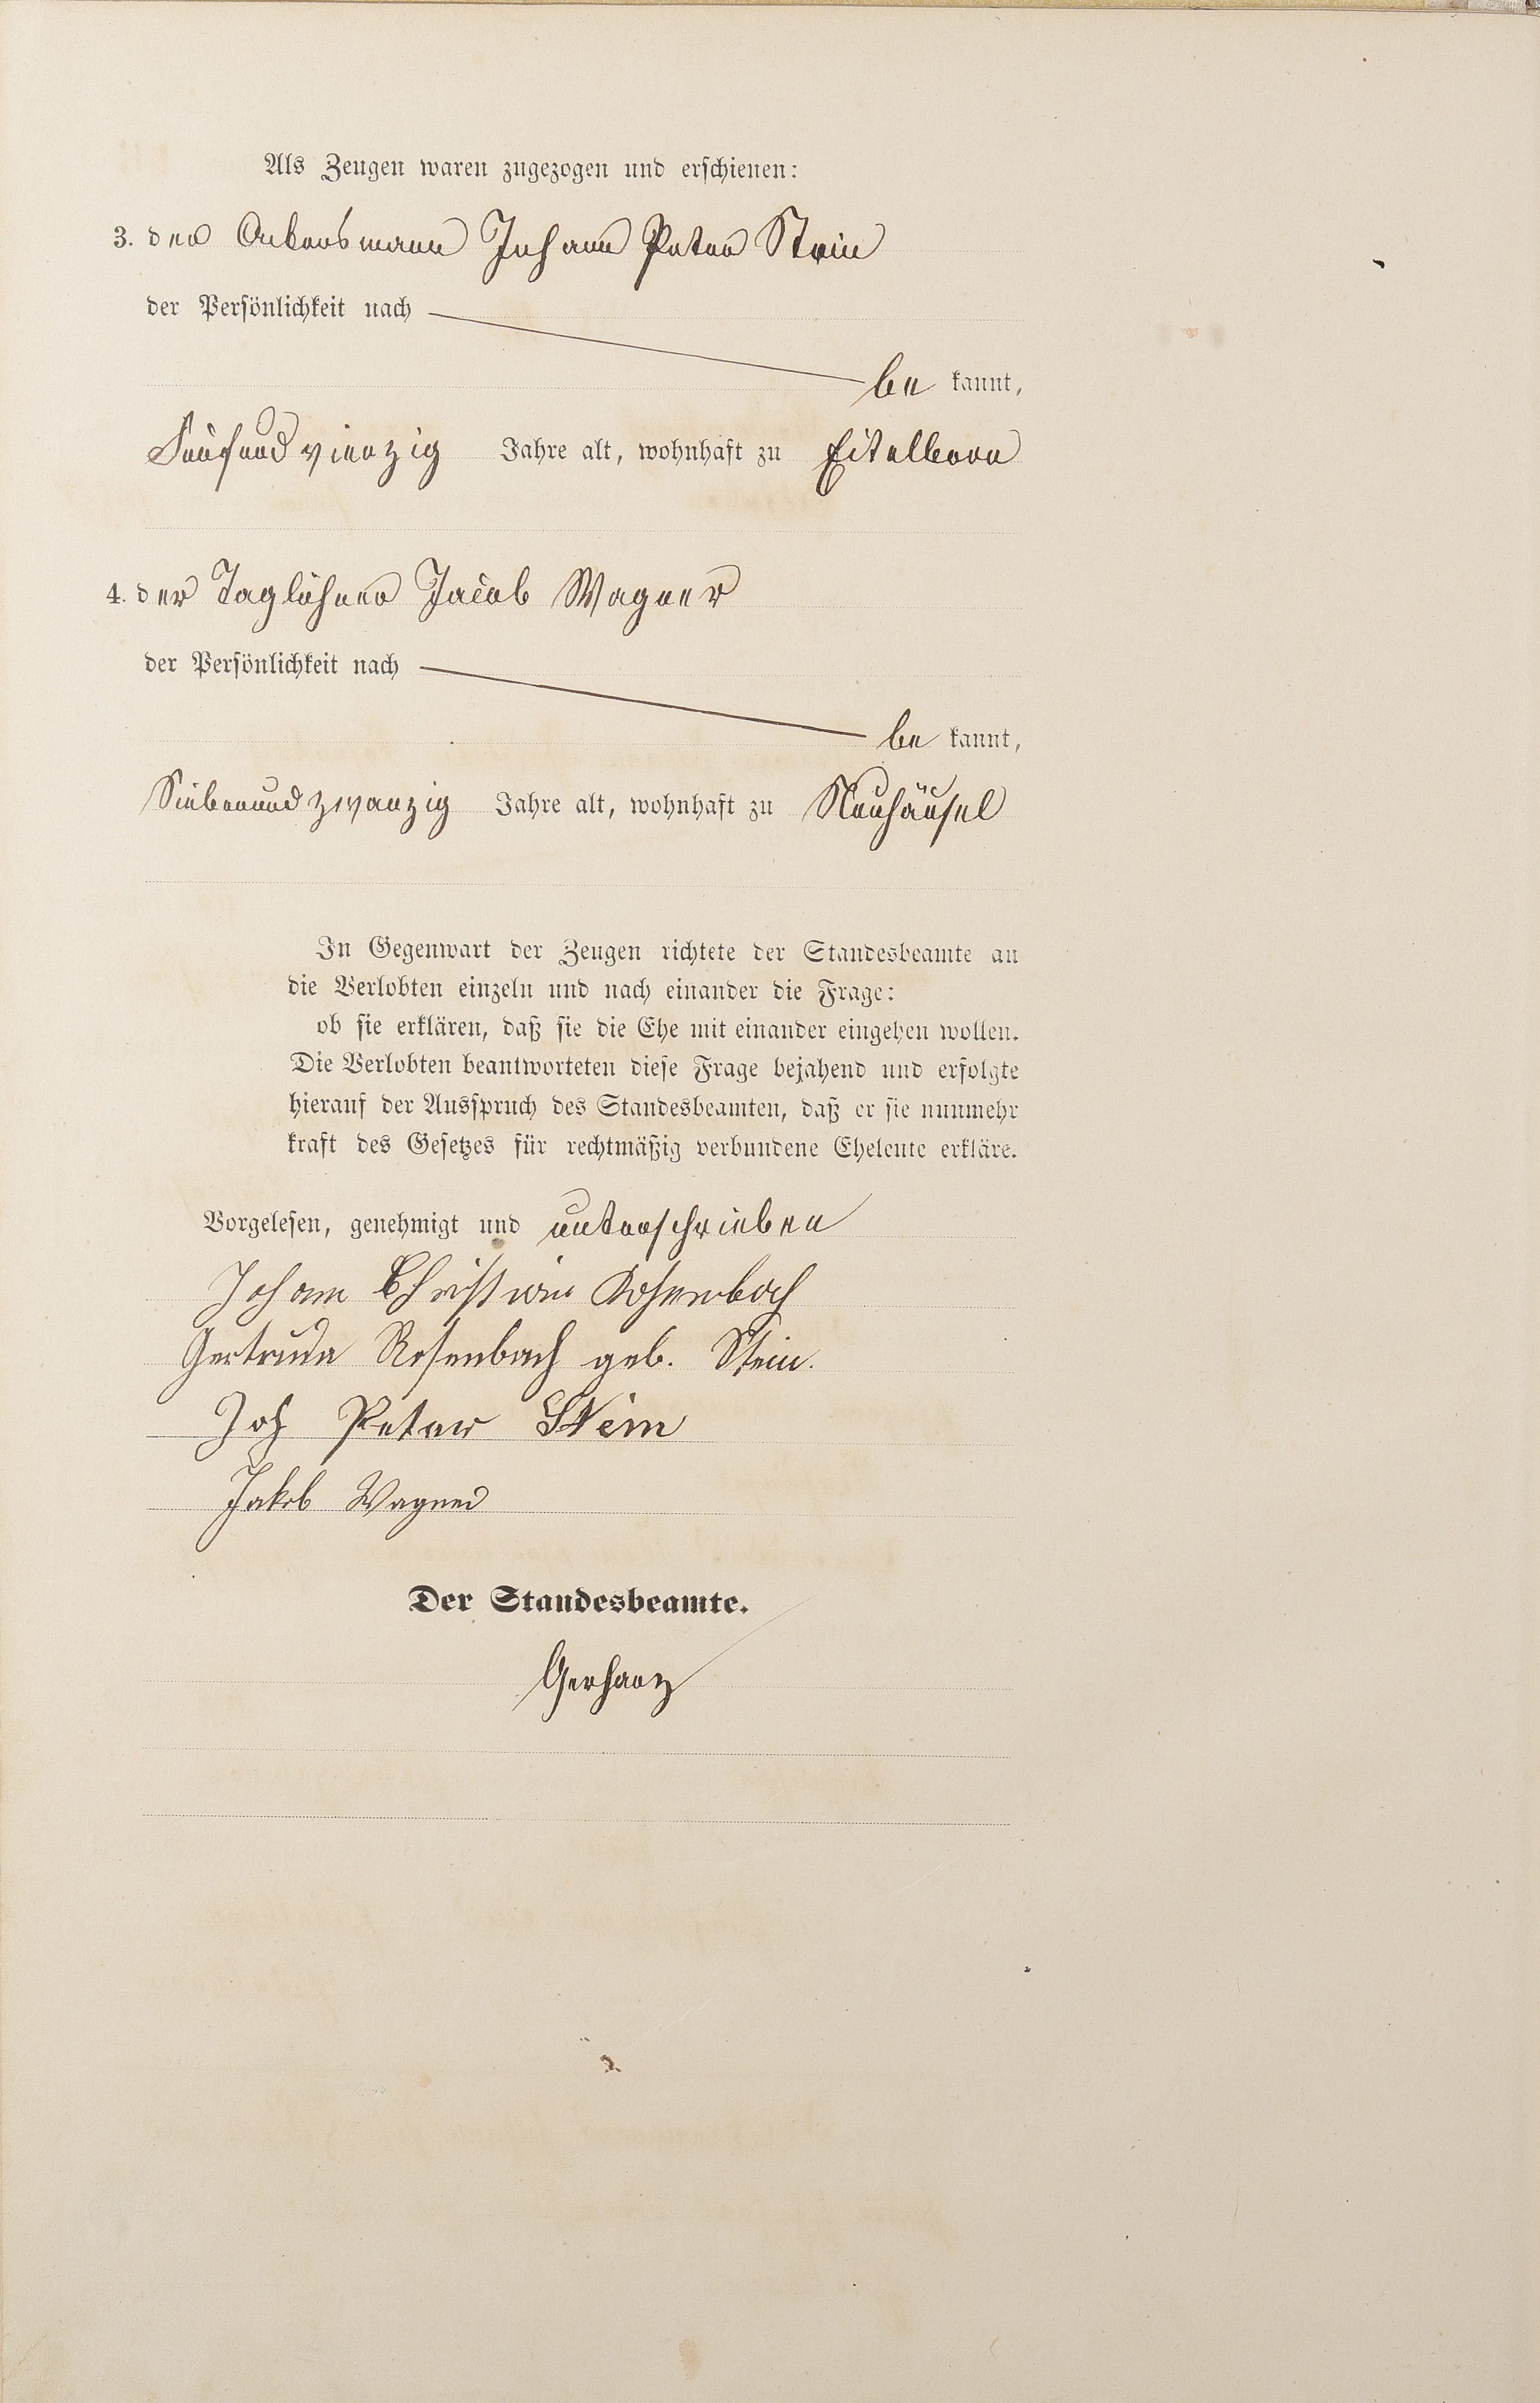 Als Zeugen waren zugezogen und erschienen:
3. der Ackersmann Johann Peter Stein
der Persönlichkeit nach
be kannt,
Fünfundvierzig Jahre alt, wohnhaft zu Eitelborn
4. der Taglöhner Jacob Wagner
der Persönlichkeit nach
be kannt,
Siebenundzwanzig Jahre alt, wohnhaft zu Neuhäusel
In Gegenwart der Zeugen richtete der Standesbeamte an
die Verlobten einzeln und nach einander die Frage:
ob sie erklären, daß sie die Ehe mit einander eingehen wollen.
Die Verlobten beantworteten diese Frage bejahend und erfolgte
hierauf der Ausspruch des Standesbeamten, daß er sie nunmehr
kraft des Gesetzes für rechtmäßig verbundene Eheleute erkläre.
Vorgelesen, genehmigt und unterschrieben
Johann Christian Rosenbach
Gertruda Rosenbach geb. Stein.
Joh Peter Stein
Jakob Wagner
Der Standesbeamte.
Gerharz